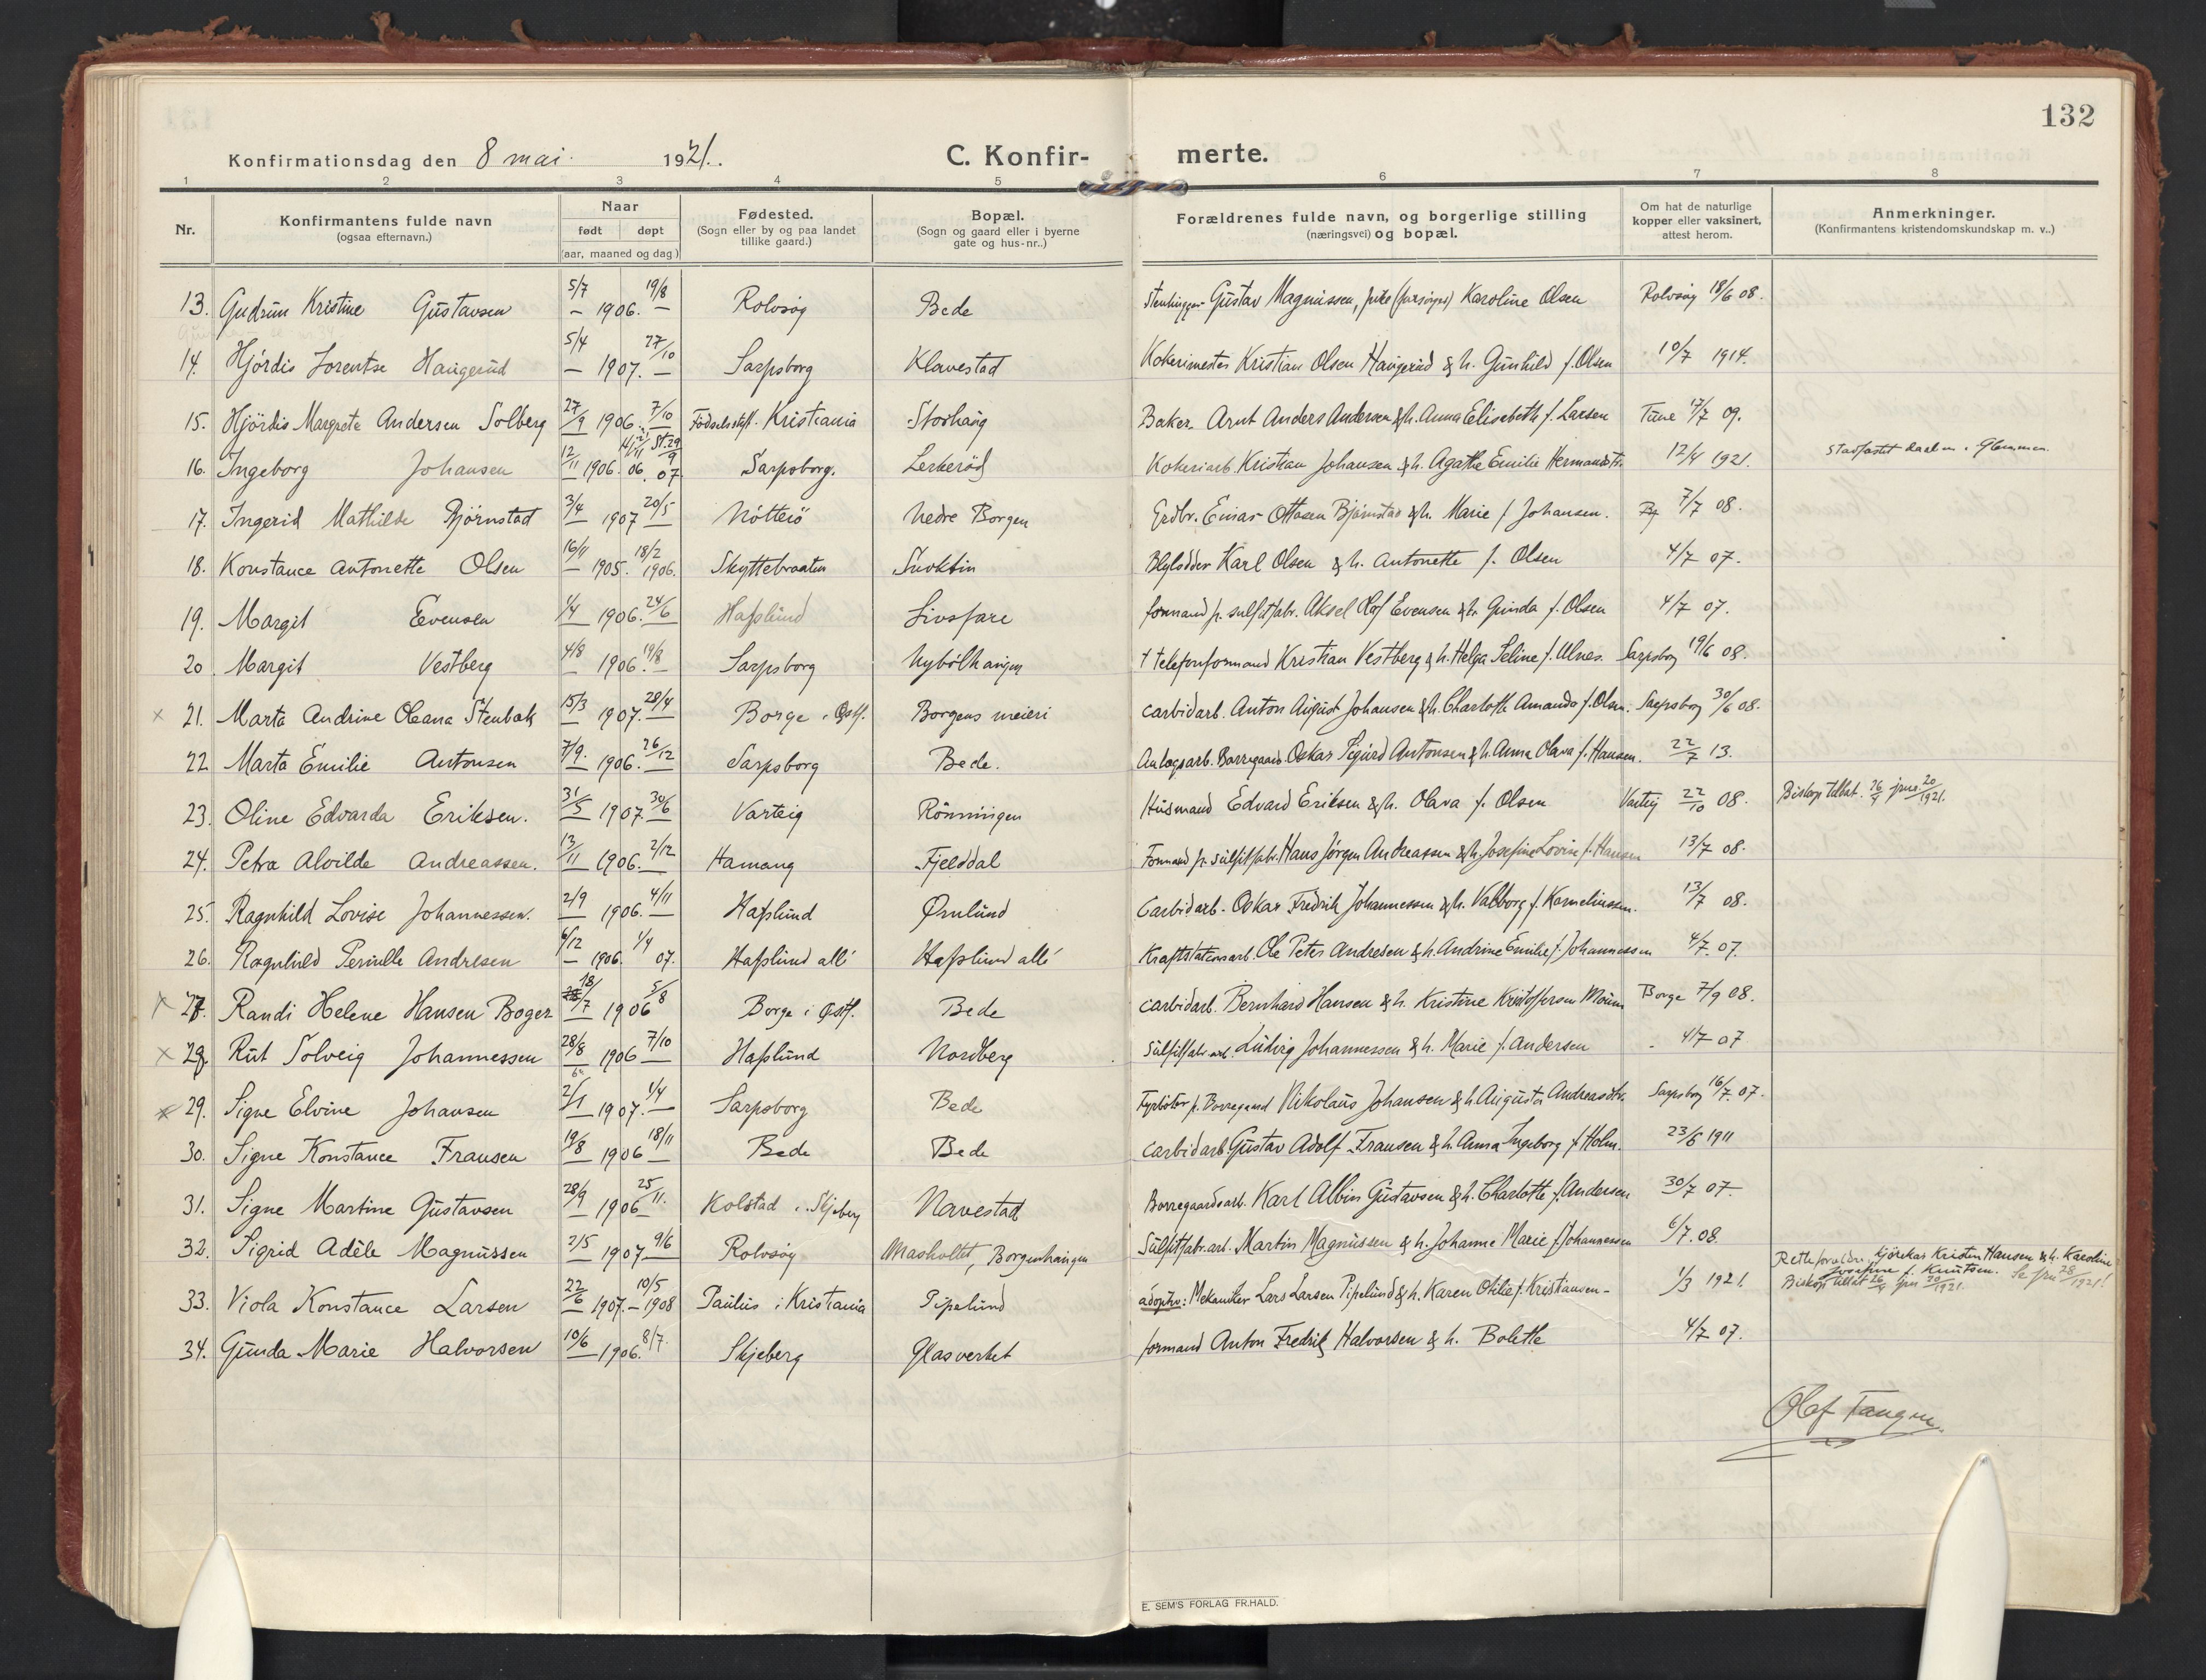 132
Konfirmationsdag den 8 mai 1921.
C. Konfir- merte.
1 2 3 4 5 6 7 8
Nr.
Konfirmantens fulde navn
(ogsaa efternavn.)
Naar
født døpt
(aar, maaned og dag)
Fødested.
(Sogn eller by og paa landet
tillike gaard.)
Bopæl.
(Sogn og gaard eller i byerne
gate og hus-nr..)
Forældrenes fulde navn, og borgerlige stilling
(næringsvei) og bopæl.
Om hat de naturlige
kopper eller vaksinert,
attest herom.
Anmerkninger.
(Konfirmantens kristendomskundskap m. v..)
13. Gudrun Kristine Gustavsen 5/7 1906. 19/8 Rolvsøy Bede Gustav Magnussen, Karoline Olsen Rolvsøy 18/6 08.
14. Hjördis Lorentse Haugerud 5/4 1907. 27/10 Sarpsborg Klavestad Kokerimester Kristian Olsen Haugerud & h. Gunhild f. Olsen 10/7 1914.
15. Hjördis Margrete Andersen Solberg 27/9 1906. 7/10 Fødselsstift. Kristiania Storhaug Baker Arnt Anders Andersen & h. Anna Elisebeth f. Larsen Tune 17/7 09.
16. Ingeborg Johansen 12/11 1906. 06. St. 29/9 07 Sarpsborg. Lerkerød Kokeriarb. Kristian Johansen & h. Agathe Emilie 12/4 1921. Stadfæstet i Glemmen
17. Ingerid Mathilde Bjørnstad 3/4 1907 20/5 Nötterö Nedre Borgen Grdbr. Einar Ottosen Bjørnstad & h. Marie f. Johansen. 7/7 08.
18. Konstance Antonette Olsen 16/11 1905. 18/2 1906. Skyttebraaten Blylodder Karl Olsen & h. Antonette f. Olsen 4/7 07.
19. Margit Evensen 1/4 1906. 24/6 Hafslund Livsfare formand p. sulfitfabr. Aksel Olaf Evensen & h. Gunda f. Olsen 4/7 07.
20. Margit Vestberg 4/8 1906. 19/8 Sarpsborg Nybölhaugen † telefonformand Kristian Vestberg & h. Helga Seline f. Ulnes. Sarpsborg 19/6 08.
x 21. Marta Andrine Oleana Stenbæk 15/3 1907. 28/4 Borge i Østf. Borgens meieri Carbidarb. Anton August Johansen & h. Charlotte Amanda f. Olsen. Sarpsborg 30/6 08.
22 Marta Emilie Antonsen 7/9. 1906. 26/12 Sarpsborg Bede. Anlægsarb. Borregaard Oskar Sigurd Antonsen & h. Anna Olava f. Hansen. 22/7 13.
23. Oline Edvarda Eriksen. 31/5 1907. 30/6 Varteig Rönningen Husmand Edvard Eriksen & h. Olava f. Olsen Varteig 22/10 08. Biskop tillat. 26/4 jnr 20/1921.
24. Petra Alvilde Andreassen. 13/11 1906. 2/12 Hamang Fjelddal Formand p. sulfitfabr. Hans Jörgen Andreassen & h. Josefine Lovise f. Hansen 13/7 08.
25. Ragnhild Lovise Johannessen. 2/9 1906. 4/11 Hafslund Ørnlund Carbidarb. Oskar Fredrik Johannessen & h. Valborg f. Korneliussen. 13/7 08.
26. Ragnhild Pernille Andresen 6/12 1906. 1/4 07. Hafslund allé Hafslund allé Kraftstationsarb. Ole Peter Andresen & h. Andrine Emilie f. Johannessen 4/7 07.
x 27. Randi Helene Hansen Boger 18/7 1906 5/8 Borge i Østf. Bede Carbidarb. Bernhard Hansen & h. Kristine Kristoffersen Moum Borge 7/9 08.
x 28. Rut Solveig Johannessen 28/8 1906 7/10 Hafslund Nordberg Sulfitfabr.arb. Ludvig Johannessen & h. Marie f. Andersen 4/7 07
x 29. Signe Elvine Johansen 2/1 1907. 1/4 Sarpsborg Bede Fyrböter p. Borregaard Nikolaus Johansen & h. Augusta Andreasdtr. Sarpsborg 16/7. 07.
30. Signe Konstance Fransen 19/8 1906 18/11 Bede Bede Carbidarb. Gustav Adolf Fransen & h. Anna Ingeborg f. Holm. 23/6 1911
31. Signe Martine Gustavsen 28/9 1906 25/11. Kolstad i Skjeberg Navestad Borregaardsarb. Karl Albin Gustavsen & h. Charlotte f. Andersen 30/7 07.
32. Sigrid Adèle Magnussen 2/5 1907. 9/6 Rolvsøy Masholtet, Borgenhaugen Sulfitfabr.arb. Martin Magnussen & h. Johanne Marie f. Johannessen 6/7. 08.
33. Viola Konstance Larsen 22/6 1907. 10/5 1908 Paulus i Kristiania Pipelund adoptiv: Mekaniker Lars Larsen Pipelund & h. Karen Otilie f. Kristiansen 1/3 1921. Rette forældre: kjørekar Kristen Hansen & h. Karoline
Josefine f. Knutsen. Se jnr 28/1921!
Biskop tillat 26/4 jnr 20/1921.
34. Gunda Marie Halvorsen 10/6 1906. 8/7. Skjeberg Glasverket formand Anton Fredrik Halvorsen & h. Bolette 4/7 07.
Olaf Tangen
E. SEM'S FORLAG FR.HALD.